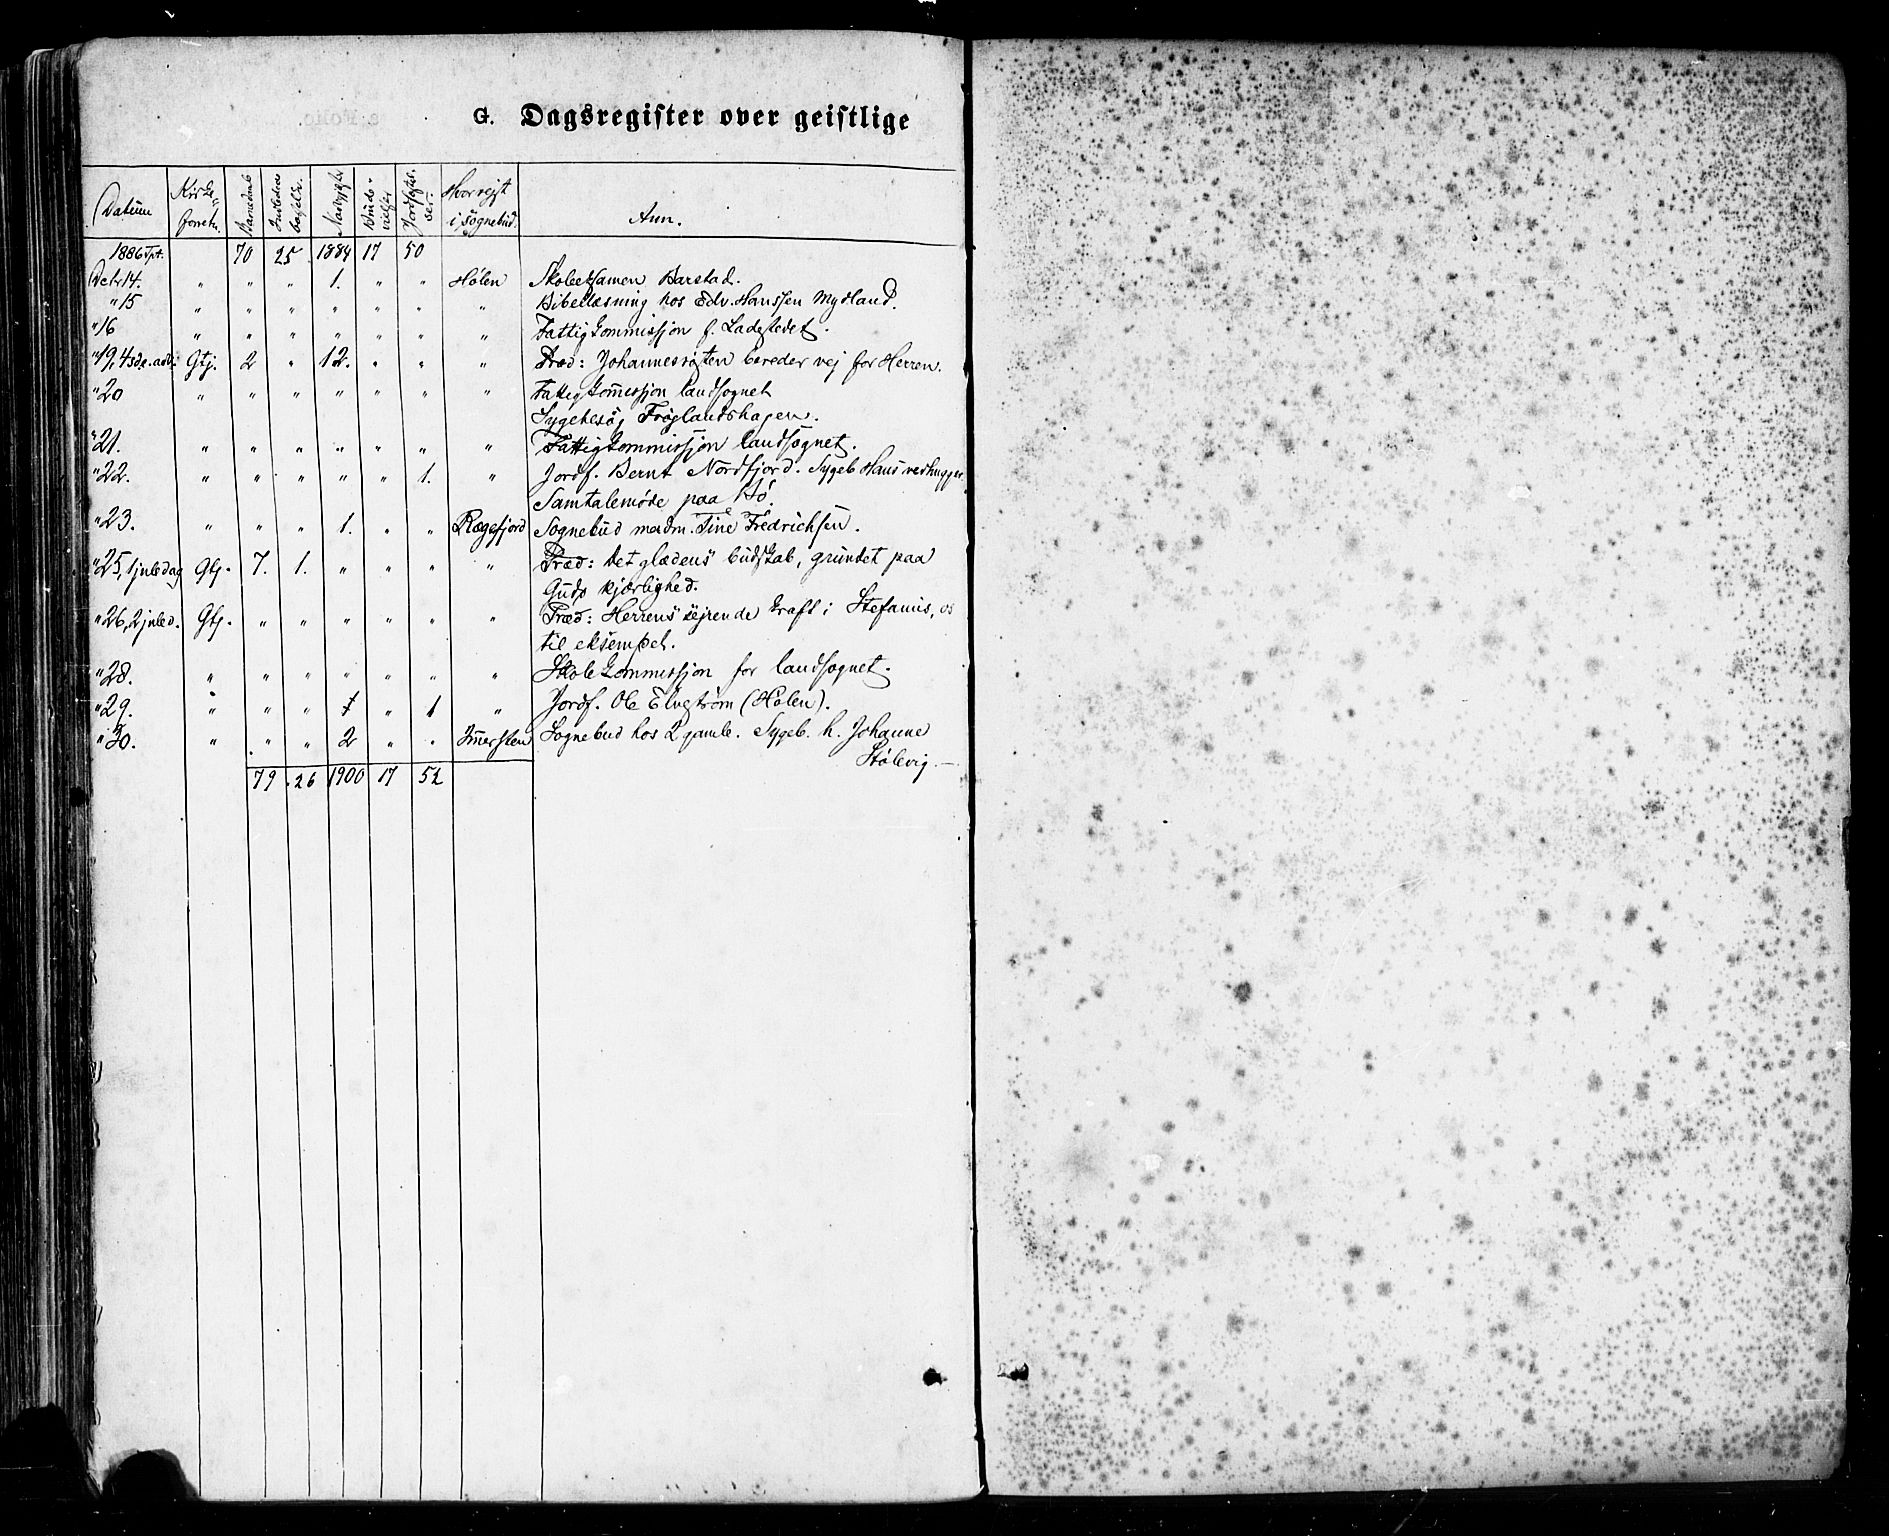 G. Dagsregister over geistlige
Datum Kirke= forretn. Barnedaab Nadvgjst Hvor rejst i Sognebud. Anm.
1886 Tpt. 70 25 1884 17 50
Dcbr 14. " " " 1. " " Hølen Skoleeksamen Barstad.
" 15 " " " " " " " Bibellæsning hos Edv. Hanssen Mydland.
" 16 " " " " " " " Fattigkommissjon f. Ladestedet.
" 19, 4 sde. adv. Gtj. 2 " 12. " " " Præd: Johannesrøsten bereder vej for Herren.
" 20 " " " " " " " Fattigkommissjon landsognet
Sygebesøg Frøglandshagen.
" 21. " " " " " " " Fattigkommissjon landsognet.
" 22. " " " " " 1. " Jordf. Bernt Nordfjord. Sygeb Hans vedhugger.
Samtalemøde paa Bø.
" 23. " " " 1. " " Rægefjord Sognebud madm. Tine Fredrichsen.
" 25, 1 juledag Gtj. 7. 1. " " " " Præd: Det glædens budskab, grundet paa
Guds kjærlighed.
" 26, 2 juled. Gtj. " " " " " " Præd: Herrens sejrende kraft i Stefanus, os
til eksempel.
" 28. " " " " " " " Skolekommissjon for landsognet.
" 29. " " " 1 " 1 " Jordf. Ole Elvestrøm (Hølen).
" 30. " " " 2 " " Immersten Sognebud hos 2 gamle. Sygeb. h. Johanne
Stølevig. —
79 . 26 1900 17 52